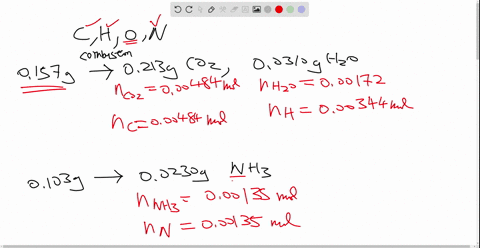 C, H, O, N
combustion
0.157g → 0.213g CO2, 0.0310g H2O
nCO2 = 0.00484 mol nH2O = 0.00172
nC = 0.00484 mol nH = 0.00344 mol
0.103g → 0.0230g NH3
nNH3 = 0.00135 mol
nN = 0.00135 mol